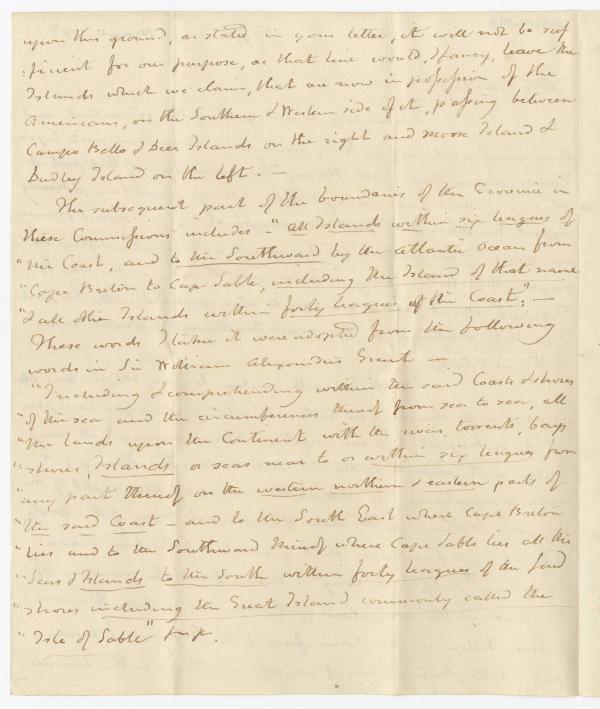 upon this ground, as stated in your letter, it will not be suf
:ficient for our purpose, as that line would, I fancy, leave the
Islands which we claim, that are now in possession of the
Americans, on the Southern & Western side of it, passing between
Campo Bello & Deer Islands on the right and Moose Island &
Dudley Island on the left. —
The subsequent part of the boundaries of the Province in
these Commissions includes — "all Islands within six leagues of
"the Coast, and to the Southward by the Atlantic Ocean from
"Cape Breton to Cape Sable, including the Island of that name
"& all other Islands within forty leagues of the Coast"; —
These words I take it were adopted from the following
words in Sir William Alexander's Grant —
"Including & comprehending within the said Coasts & shores
"of the sea and the circumferences thereof from sea to sea, all
"the lands upon the Continent with the rivers, torrents, bays
"shores, Islands or seas near to or within six leagues from
"any part thereof on the western northern & eastern parts of
"the said Coast — and to the South East where Cape Breton
"lies and to the Southward thereof where Cape Sable lies all the
"Seas & Islands to the South within forty leagues of the said
"shores including the Great Island commonly called the
"Isle of Sable"